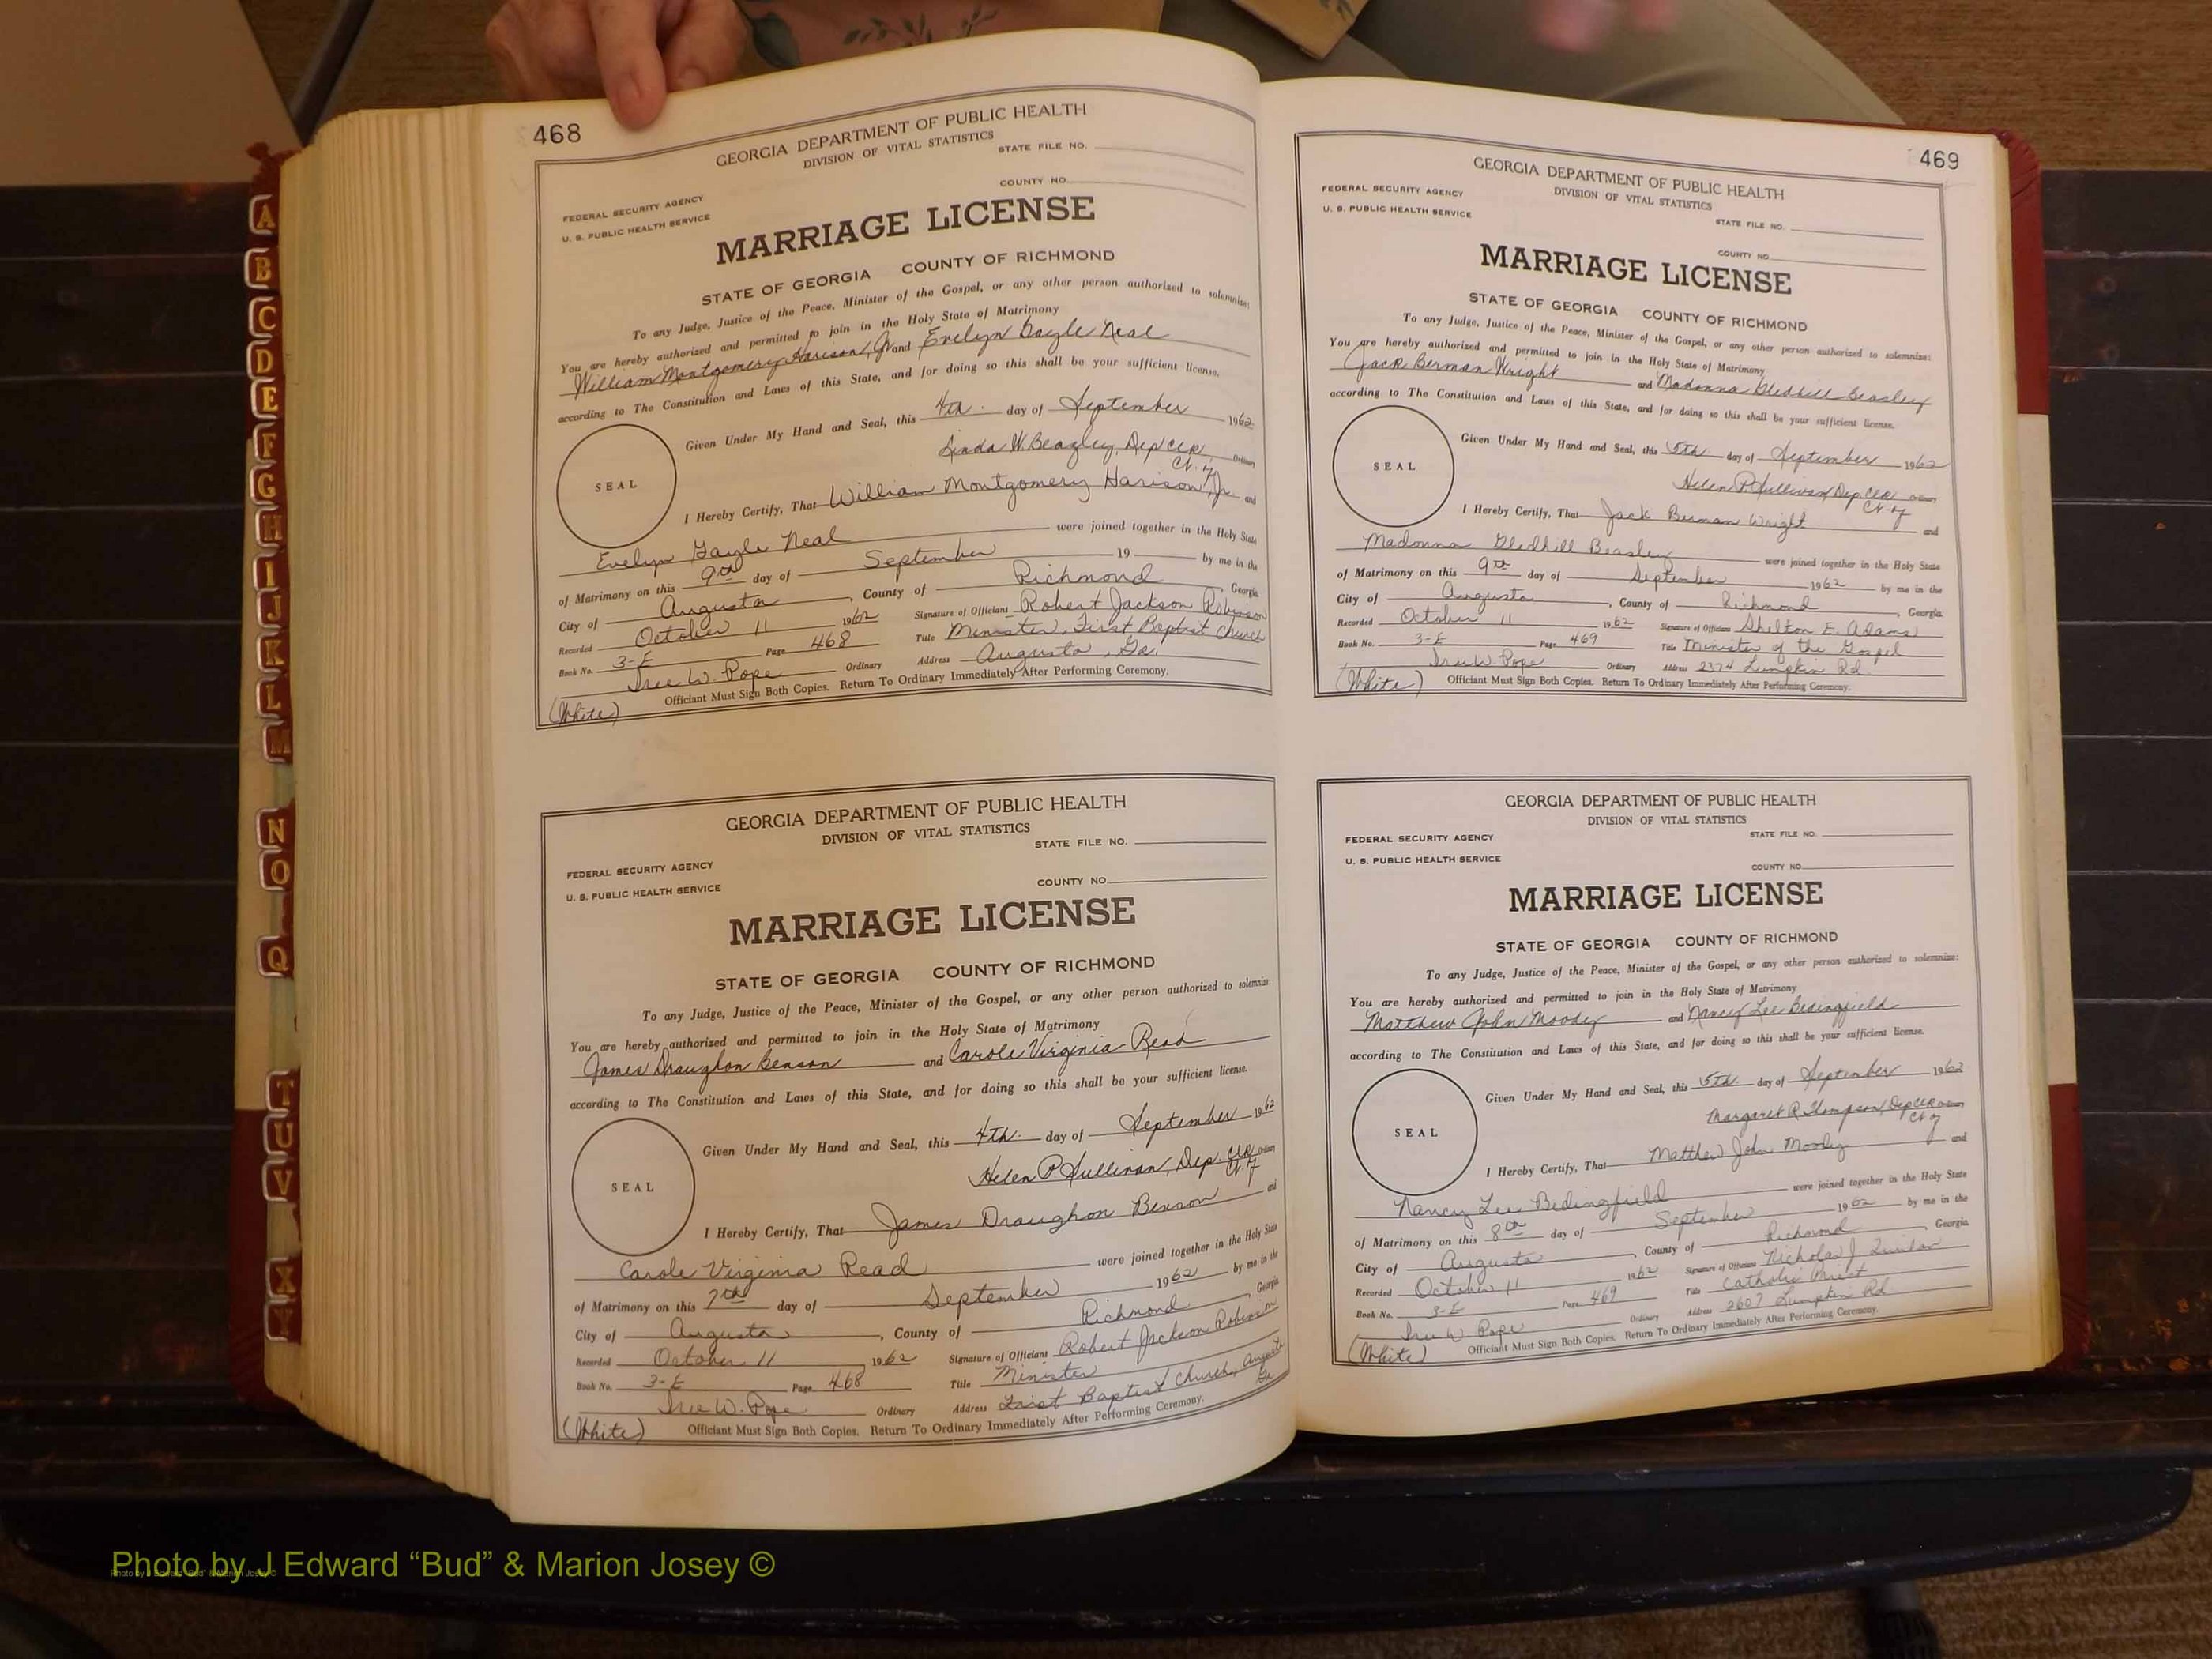 468
GEORGIA DEPARTMENT OF PUBLIC HEALTH
DIVISION OF VITAL STATISTICS
STATE FILE NO.
COUNTY NO.
FEDERAL SECURITY AGENCY
U. S. PUBLIC HEALTH SERVICE
MARRIAGE LICENSE
STATE OF GEORGIA COUNTY OF RICHMOND
To any Judge, Justice of the Peace, Minister of the Gospel, or any other person authorized to solemnize:
You are hereby authorized and permitted to join in the Holy State of Matrimony
William Montgomery Harison, Jr and Evelyn Gayle Neal
according to The Constitution and Laws of this State, and for doing so this shall be your sufficient license.
Given Under My Hand and Seal, this 4th. day of September 1962
SEAL
Linda W. Beazley, Dep Clk Ordinary
Ct. of
I Hereby Certify, That William Montgomery Harison, Jr. and
Evelyn Gayle Neal were joined together in the Holy State
of Matrimony on this 9th day of September 19 by me in the
City of Augusta, County of Richmond, Georgia
Recorded October 11 1962 Signature of Officiant Robert Jackson Robinson
Book No. 3-E Page 468 Title Minister, First Baptist Church
Iree W. Pope Ordinary Address Augusta, Ga.
Officiant Must Sign Both Copies. Return To Ordinary Immediately After Performing Ceremony.
(White)
GEORGIA DEPARTMENT OF PUBLIC HEALTH
DIVISION OF VITAL STATISTICS
STATE FILE NO.
FEDERAL SECURITY AGENCY
COUNTY NO.
U. S. PUBLIC HEALTH SERVICE
MARRIAGE LICENSE
STATE OF GEORGIA COUNTY OF RICHMOND
To any Judge, Justice of the Peace, Minister of the Gospel, or any other person authorized to solemnize:
You are hereby authorized and permitted to join in the Holy State of Matrimony
James Draughon Benson and Carole Virginia Read
according to The Constitution and Laws of this State, and for doing so this shall be your sufficient license.
Given Under My Hand and Seal, this 4th. day of September 1962
SEAL
Helen P. Sullivan, Dep. Clk Ordinary
Ct. of
I Hereby Certify, That James Draughon Benson and
Carole Virginia Read were joined together in the Holy State
of Matrimony on this 7th day of September 1962 by me in the
City of Augusta, County of Richmond Georgia
Recorded October 11 1962 Signature of Officiant Robert Jackson Robinson
Book No. 3-E Page 468 Title Minister
Iree W. Pope Ordinary Address First Baptist Church, Augusta Ga
(White) Officiant Must Sign Both Copies. Return To Ordinary Immediately After Performing Ceremony.
469
GEORGIA DEPARTMENT OF PUBLIC HEALTH
DIVISION OF VITAL STATISTICS
FEDERAL SECURITY AGENCY
U. S. PUBLIC HEALTH SERVICE
STATE FILE NO.
COUNTY NO.
MARRIAGE LICENSE
STATE OF GEORGIA COUNTY OF RICHMOND
To any Judge, Justice of the Peace, Minister of the Gospel, or any other person authorized to solemnize:
You are hereby authorized and permitted to join in the Holy State of Matrimony
Jack Berman Wright and Madonna Gledhill Beasley
according to The Constitution and Laws of this State, and for doing so this shall be your sufficient license.
Given Under My Hand and Seal, this 5th. day of September 1962
SEAL
Helen P. Sullivan, Dep. Clk Ordinary
Ct. of
I Hereby Certify, That Jack Berman Wright and
Madonna Gledhill Beasley were joined together in the Holy State
of Matrimony on this 9th day of September 1962 by me in the
City of Augusta, County of Richmond, Georgia.
Recorded October 11 1962 Signature of Officiant Shilton E. Adams
Book No. 3-E Page 469 Title Minister of the Gospel
Iree W. Pope Ordinary Address 2374 Lumpkin Rd.
(White) Officiant Must Sign Both Copies. Return To Ordinary Immediately After Performing Ceremony.
GEORGIA DEPARTMENT OF PUBLIC HEALTH
DIVISION OF VITAL STATISTICS
FEDERAL SECURITY AGENCY
STATE FILE NO.
U. S. PUBLIC HEALTH SERVICE
COUNTY NO.
MARRIAGE LICENSE
STATE OF GEORGIA COUNTY OF RICHMOND
To any Judge, Justice of the Peace, Minister of the Gospel, or any other person authorized to solemnize:
You are hereby authorized and permitted to join in the Holy State of Matrimony
Matthew John Moody and Nancy Lee Bedingfield
according to The Constitution and Laws of this State, and for doing so this shall be your sufficient license.
Given Under My Hand and Seal, this 5th. day of September 1962
SEAL
Margaret R. Thompson, Dep Clk Ordinary
Ct. of
I Hereby Certify, That Matthew John Moody and
Nancy Lee Bedingfield were joined together in the Holy State
of Matrimony on this 8th day of September 1962 by me in the
City of Augusta, County of Richmond, Georgia
Recorded October 11 1962 Signature of Officiant Nicholas J Quinlan
Book No. 3-E Page 469 Title Catholic Priest
Iree W Pope Ordinary Address 2607 Lumpkin Rd
(White) Officiant Must Sign Both Copies. Return To Ordinary Immediately After Performing Ceremony.
A
B
C
D
E
F
G
H
I
J
K
L
M
N
O
Q
T
U
V
X
Y
Photo by J Edward “Bud” & Marion Josey ©
Photo by J Edward "Bud" & Marion Josey ©